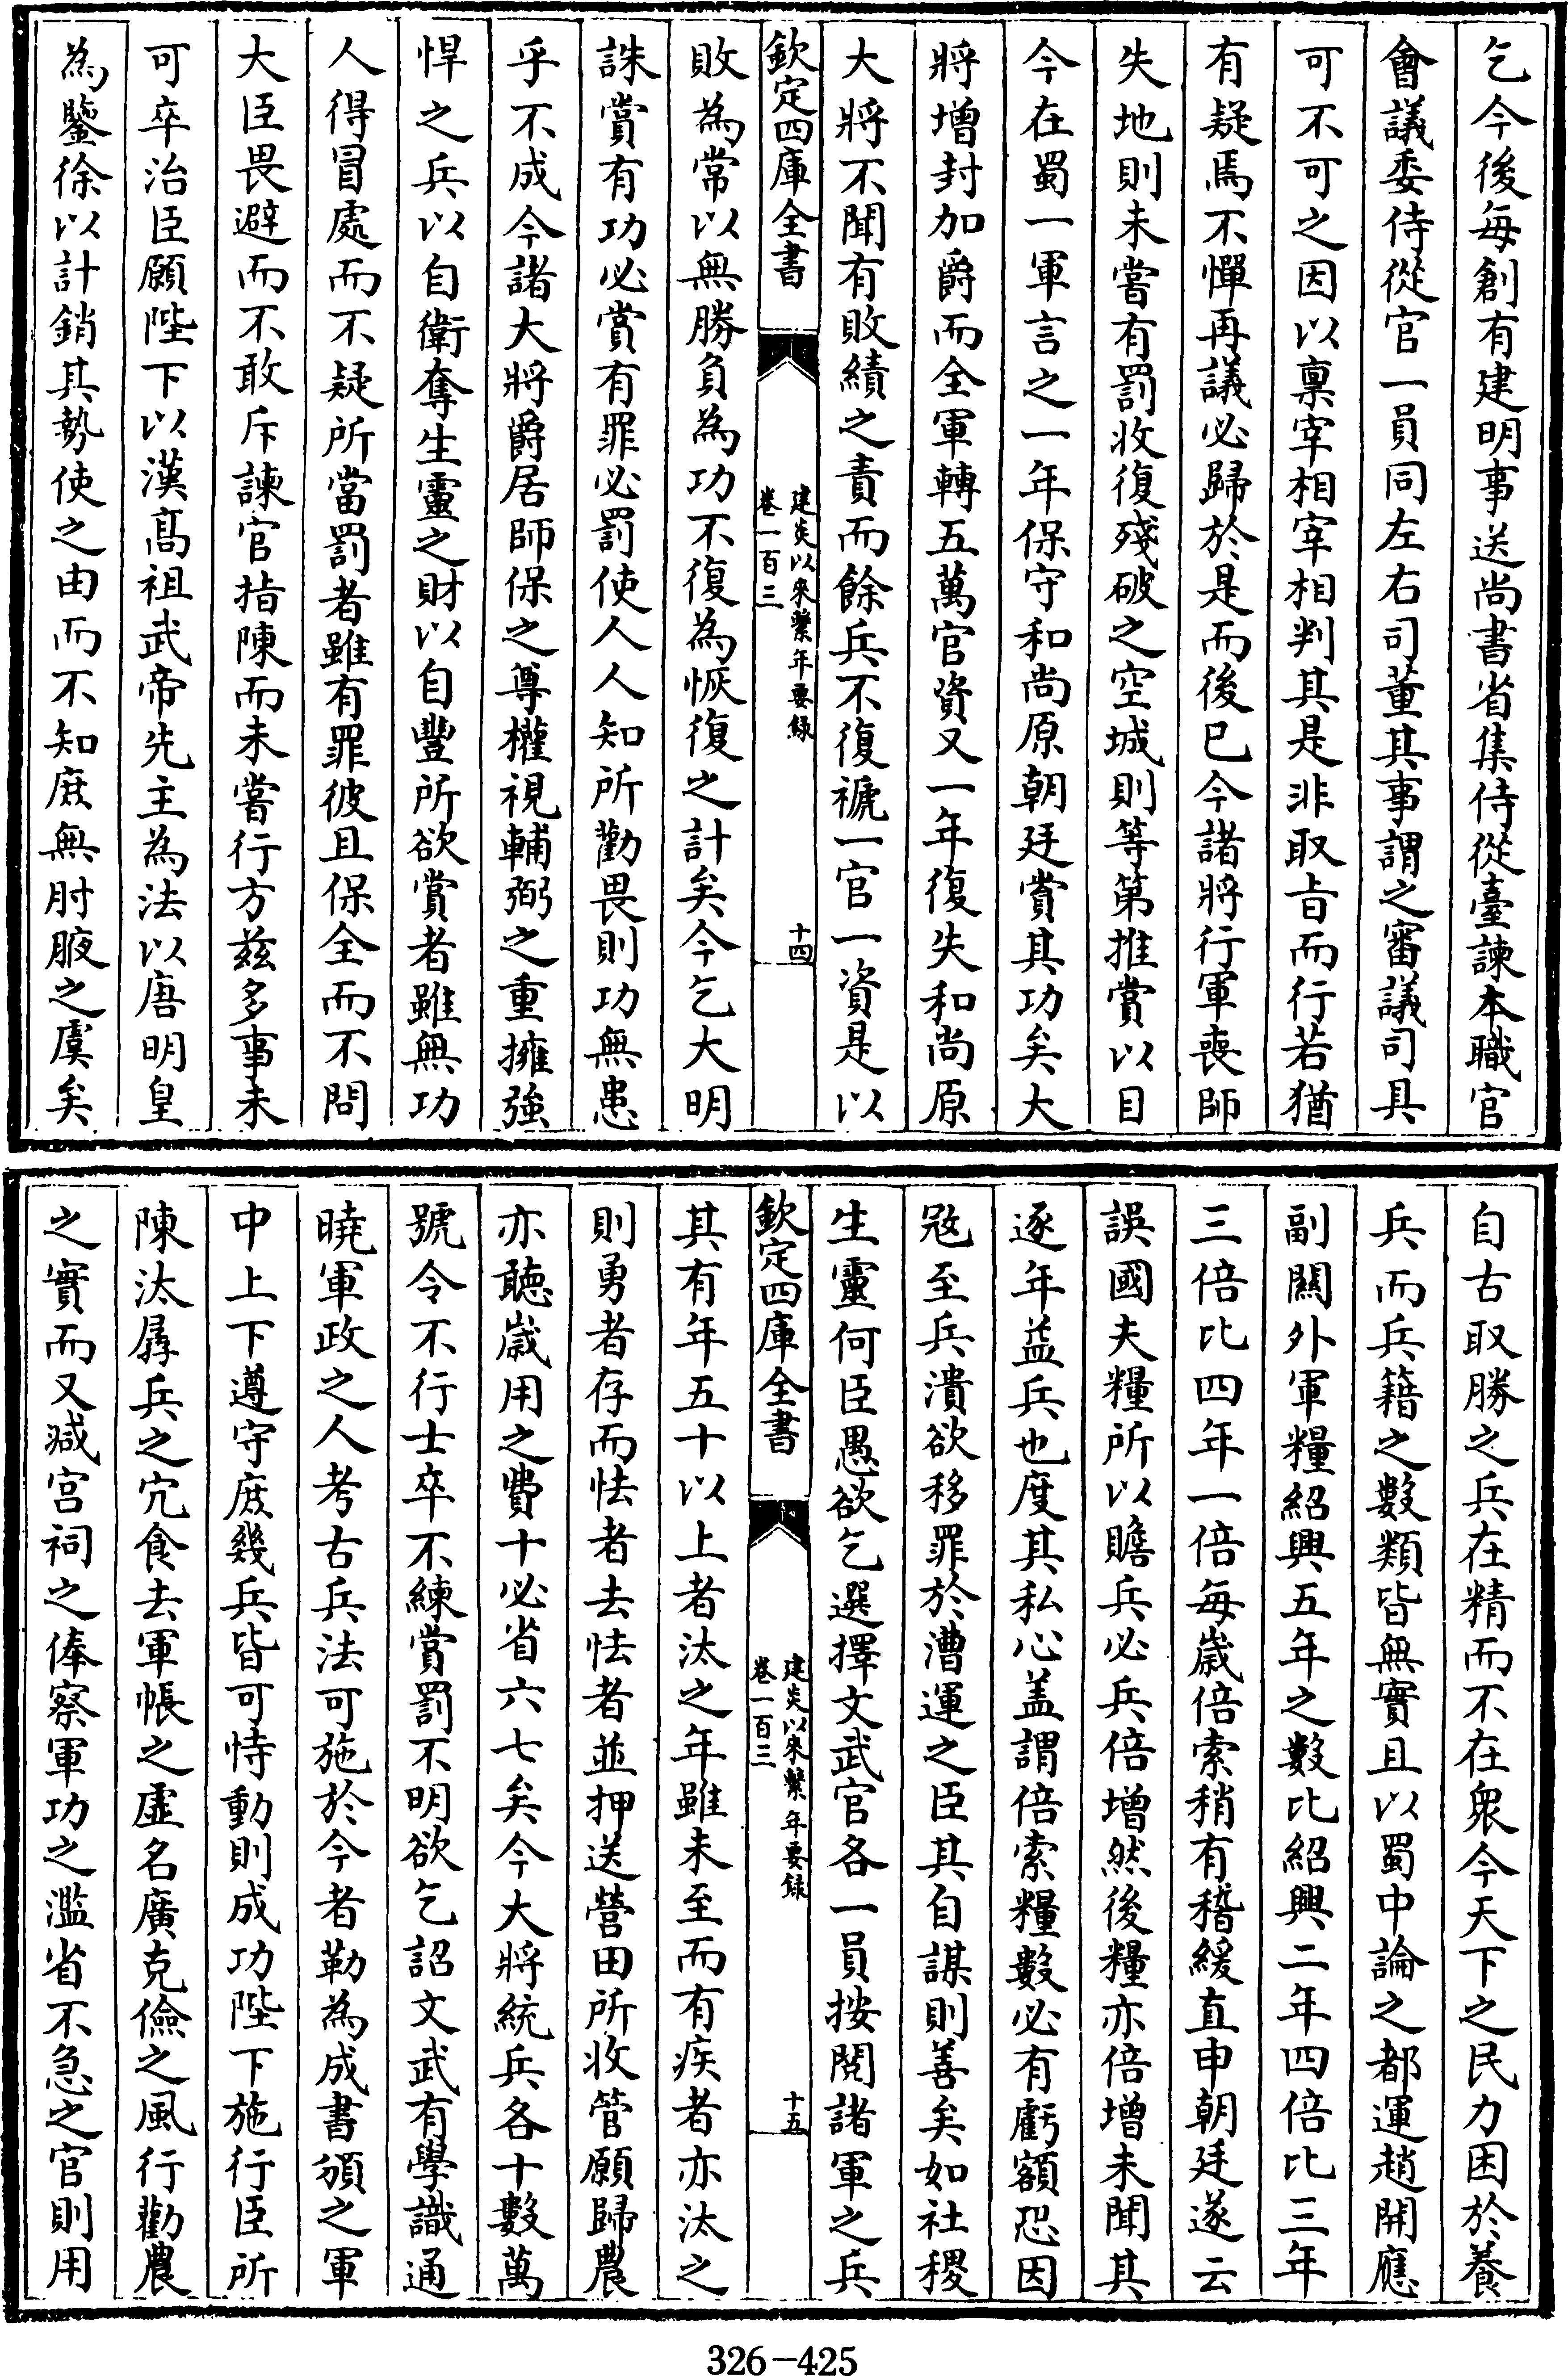 乞今後毎創有建明事送尚書省集侍從臺諫本職官
會議委侍從官一員同左右司董其事謂之審議司具
可不可之因以稟宰相宰相判其是非取旨而行若猶
有疑焉不憚再議必歸於是而後已今諸將行軍喪師
失地則未嘗有罰收復殘破之空城則等第推賞以目
今在蜀一軍言之一年保守和尚原朝廷賞其功矣大
將增封加爵而全軍轉五萬官資又一年復失和尚原
大將不聞有敗績之責而餘兵不復褫一官一資是以
欽定四庫全書
建炎以來繫年要録
卷一百三
十四
敗為常以無勝負為功不復為恢復之計矣今乞大明
誅賞有功必賞有罪必罰使人人知所勸畏則功無患
乎不成今諸大將爵居師保之尊權視輔弼之重擁強
悍之兵以自衛奪生靈之財以自豐所欲賞者雖無功
人得冒處而不疑所當罰者雖有罪彼且保全而不問
大臣畏避而不敢斥諫官指陳而未嘗行方兹多事未
可卒治臣願陛下以漢髙祖武帝先主為法以唐明皇
為鑒徐以計銷其勢使之由而不知庶無肘腋之虞矣
自古取勝之兵在精而不在衆今天下之民力困於養
兵而兵籍之數類皆無實且以蜀中論之都運趙開應
副關外軍糧紹興五年之數比紹興二年四倍比三年
三倍比四年一倍毎歲倍索稍有稽緩直申朝廷遂云
誤國夫糧所以贍兵必兵倍增然後糧亦倍增未聞其
逐年益兵也度其私心盖謂倍索糧數必有虧額恐因
㓂至兵潰欲移罪於漕運之臣其自謀則善矣如社稷
生靈何臣愚欲乞選擇文武官各一員按閱諸軍之兵
欽定四庫全書
建炎以來繫年要録
卷一百三
十五
其有年五十以上者汰之年雖未至而有疾者亦汰之
則勇者存而怯者去怯者並押送營田所收管願歸農
亦聽歲用之費十必省六七矣今大將統兵各十數萬
號令不行士卒不練賞罰不明欲乞詔文武有學識通
曉軍政之人考古兵法可施於今者勒為成書頒之軍
中上下遵守庶幾兵皆可恃動則成功陛下施行臣所
陳汰孱兵之宂食去軍帳之虛名廣克儉之風行勸農
之實而又减宫祠之俸察軍功之濫省不急之官則用
326-425